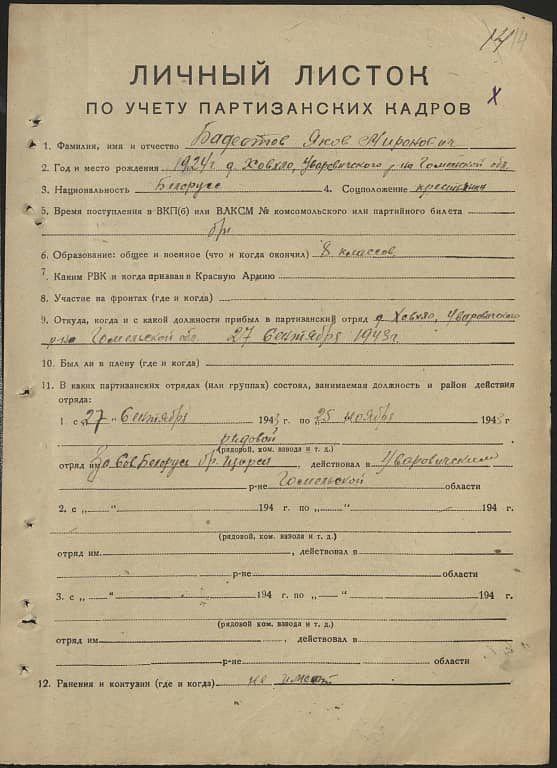 14 14
ЛИЧНЫЙ ЛИСТОК
ПО УЧЕТУ ПАРТИЗАНСКИХ КАДРОВ
х
1. Фамилия, имя и отчество Яков Миронович
2. Год и место рождения 1924 г. д. Ховхло, Уваровичского р-на Гомельской обл.
3. Национальность Белорус 4. Соцположение крестьянин
5. Время поступления в ВКП(б) или ВЛКСМ № комсомольского или партийного билета
б/п
6. Образование: общее и военное (что и когда окончил) 8 классов
7. Каким РВК и когда призван в Красную Армию
8. Участие на фронтах (где и когда)
9. Откуда, когда и с какой должности прибыл в партизанский отряд д. Ховхло, Уваровичского
р-на Гомельской обл. 27 Сентября 1943 г.
10. Был ли в плену (где и когда)
11. В каких партизанских отрядах (или группах) состоял, занимаемая должность и район действия
отряда:
1. с „27 “ Сентября 1943 г. по „25 ноября 1943 г.
рядовой
(рядовой, ком. взвода и т. д.)
отряд им. За Сов. Белорусь бр. , действовал в Уваровичским
р-не Гомельской области
2. с „ “ 194 г. по „ “ 194 г.
(рядовой, ком. взвода и т. д.)
отряд им. , действовал в
р-не области
3. с „ “ 194 г. по „ “ 194 г.
(рядовой, ком. взвода и т. д.)
отряд им. , действовал в
р-не области
12. Ранения и контузии (где и когда) не имеет